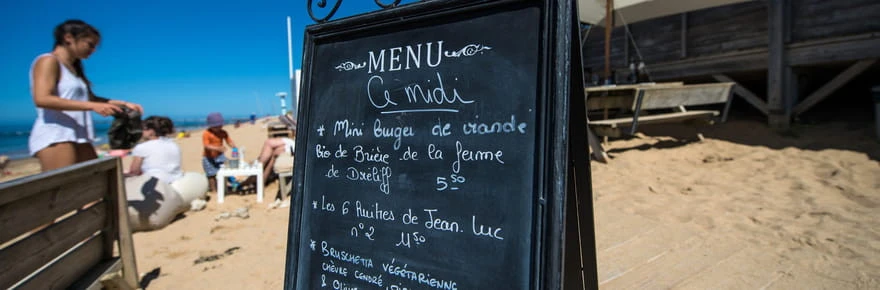 MENU
Ce midi
* Mini burger de viande
bio de Brière de la ferme
de Dreliff
5.50
* Les 6 Huitres de Jean. Luc
n°2 11.50
* BRUSCHETTA VÉGÉTARIENNE
CHÈVRE CENDRÉ,
& OLIVE